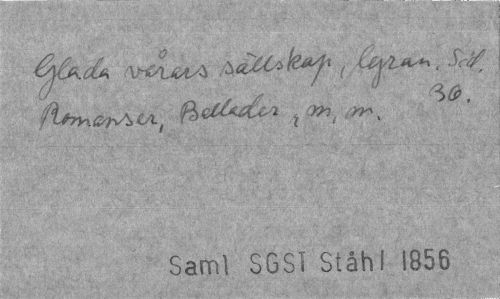 Glada vårars sällskap, lyran. Sid.
Romanser, Ballader, m, m. 30.
Saml SGST Ståhl 1856